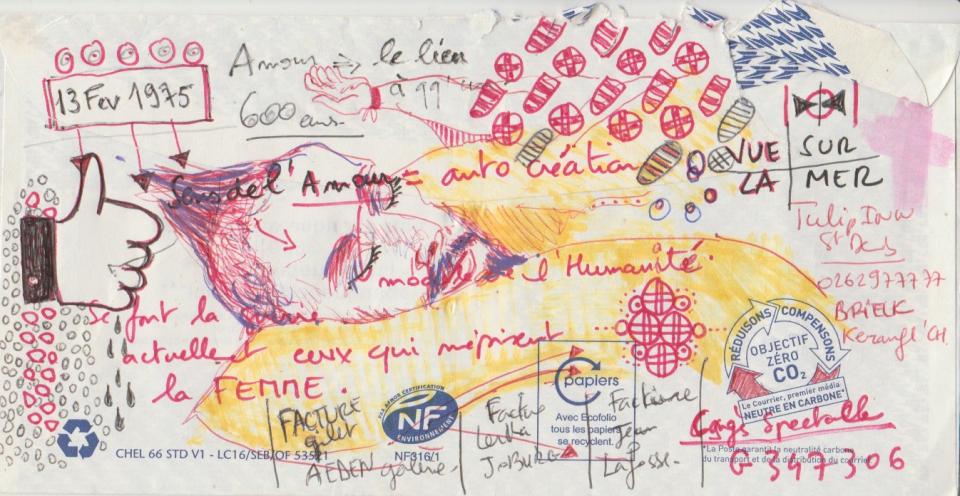 13 Fev 1975
Amour => le lien
à 99
600 ans
Sens de l'Amour = auto création
VUE SUR
LA MER
Tulip Inn
St Denis
0262977777
BRIEUK
moderne de l'Humanité.
Se font la guerre
actuellement ceux qui méprisent
la FEMME.
RÉDUISONS COMPENSONS
OBJECTIF
ZÉRO
CO₂
Le Courrier, premier média
NEUTRE EN CARBONE*
papiers
Avec Ecofolio
tous les papiers
se recyclent.
AFAQ AFNOR CERTIFICATION
NF
ENVIRONNEMENT
NF316/1
CHEL 66 STD V1 - LC16/SEB/OF 53521
FACTURE
AEDEN galerie
Facture
JoBURG
Factures
Jean
Lafosse
Congés Spectacle
*La Poste garantit la neutralité carbone
du transport et de la distribution du courrier
G 347306